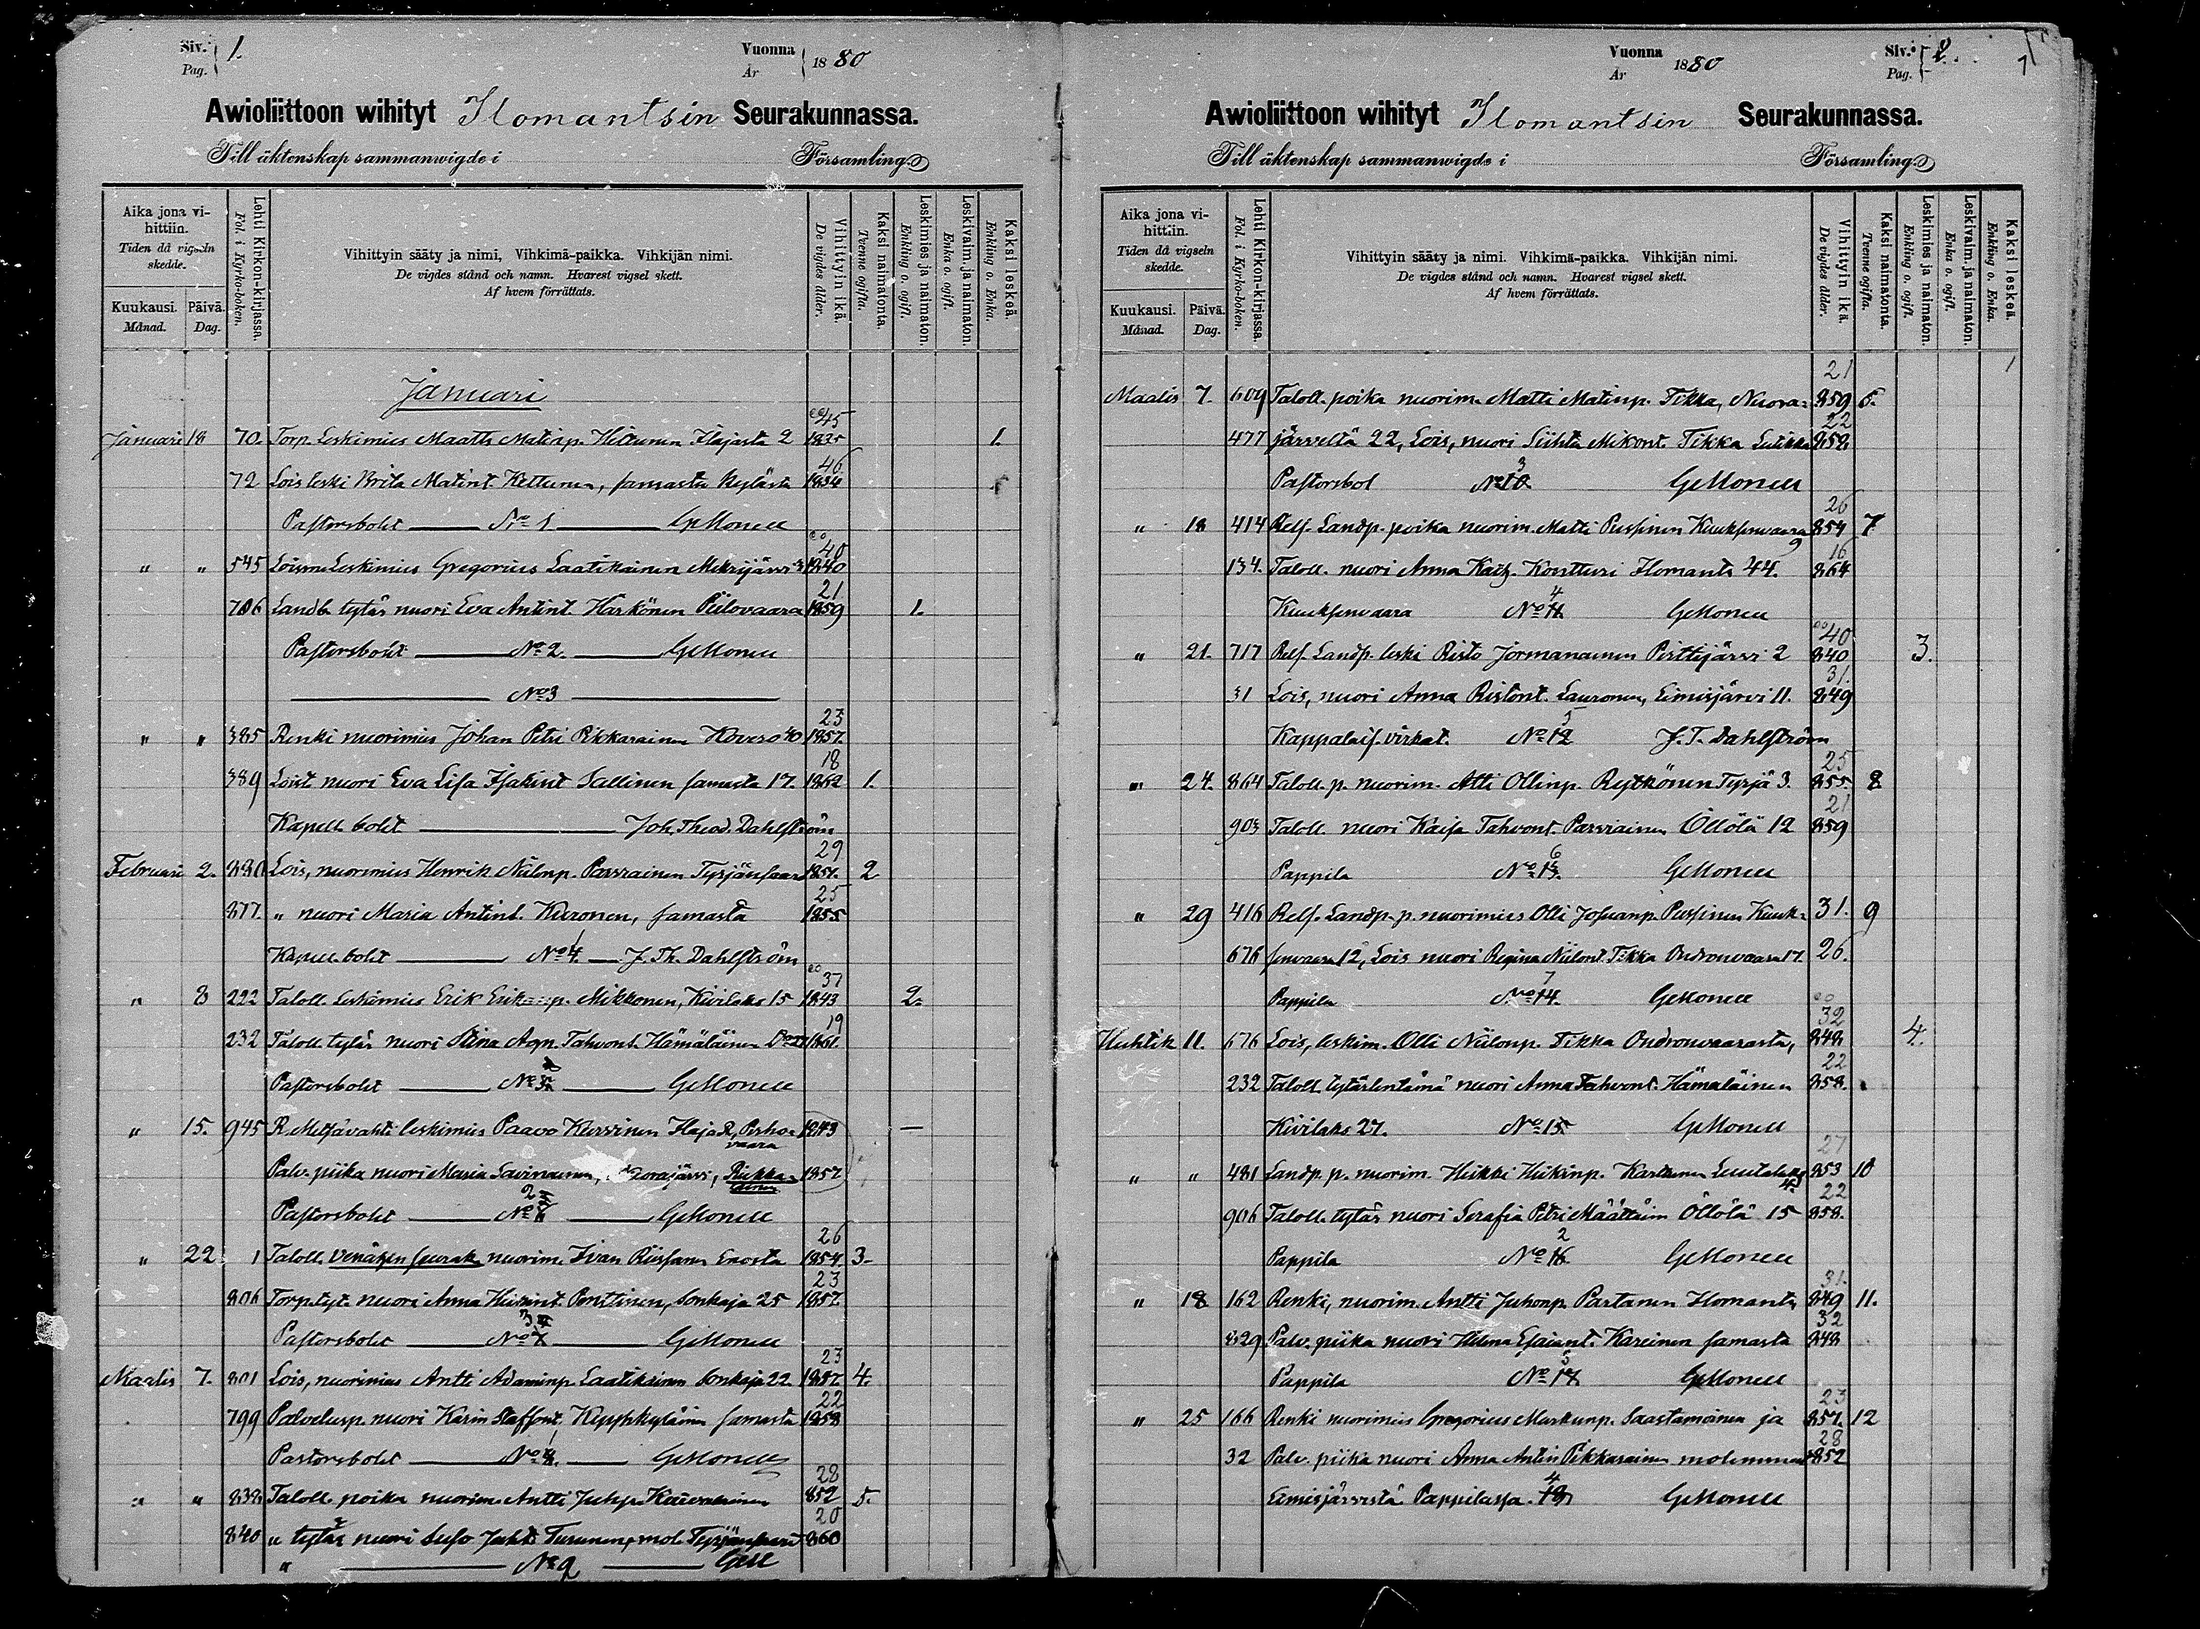 Siv. Pag. 1.
Vuonna År 1880
Awioliittoon wihityt Ilomantsin Seurakunnassa.
Till äktenskap sammanwigde i Församling
Aika jona vihittiin. Tiden då vigseln skedde.
Kuukausi. Månad.
Päivä. Dag.
Lehti Kirkon-kirjassa. Fol. i Kyrko-boken.
Vihittyin sääty ja nimi, Vihkimä-paikka. Vihkijän nimi.
De vigdes stånd och namn. Hvarest vigsel skett.
Af hvem förrättats.
Vihittyin ikä. De vigdes ålder.
Kaksi naimatonta. Tvenne ogifta.
Leskimies ja naimaton. Enkling o. ogift.
Leskivaim. ja naimaton. Enka o. ogift.
Kaksi leskeä. Enkling o. Enka.
Januari
45
Januari 18 70. Torp. Leskimies Maatti Matinp. Hiltunen Ilajasta 2 1835 1.
46.
72 Lois leski Brita Matint. Kettunen, samasta kylästä 1834
Pastorsbolet No 1 GMonell
40
" " 545 Loismleskimies Gregorius Laatikainen Mekrijärvi 1840
21
706 Landb. tytär nuori Eva Antint. Harkönen Piilovaara 1859 1.
Pastorsbolet No 2. GMonell
No 3
23
" " 385 Renki nuorimies Johan Petri Pikkarainen Kovero 40 1857.
18
389 Loist. nuori Eva Lisa Isakint Sallinen samasta 17. 1862 1.
Kapell. bolet Joh. Theod. Dahlström
29
Februari 2. 880 Lois, nuorimies Henrik Niilonp. Parviainen Tyrjänsaari 1851. 2
25
877. " nuori Maria Antint. Kuronen, samasta 1855
Kapell. bolet No 4. J. Th. Dahlström
37
" 8 222 Taloll. leskimies Erik Erikinp. Mikkonen, Kivilaks 15 1843 2.
19
232 Taloll. tytär nuori Stina Agn. Tahvont. Hämäläinen Do 27 1861.
Pastorsbolet No 5 GMonell
" 15. 945 R. Metsävahti leskimies Paavo Kurvinen Ilaja 2, Perho- 1843 —
vaara
Palv. piika nuori Maria Savinainen, 1857
Pastorsbolet No 6 GMonell
26
" 22 1 Taloll. Venäjän seurak. nuorim. Iivan Riissanen Enosta 1854. 3-
23
806 Torp.tyt. nuori Anna Heikint. Penttinen, Sonkaja 25 1857.
Pastorsbolet No 7 GMonell
23
Maalis 7. 801 Lois, nuorimies Antti Adaminp. Laatikainen Sonkaja 22. 1857. 4.
22
799 Palvelusp. nuori Karin Staffant. samasta 1858
Pastorsbolet No 8. GMonell
28
" " 838 Taloll. poika nuorim. Antti Juhp. 852 5.
20
840 " tytär nuori Juht. Turunen, mol. Tyrjänsaari 860
" No 9 GMll
Vuonna År 1880
Siv. Pag. 2.
1
Awioliittoon wihityt Ilomantsin Seurakunnassa.
Till äktenskap sammanwigde i Församling
Aika jona vihittiin. Tiden då vigseln skedde.
Kuukausi. Månad.
Päivä. Dag.
Lehti Kirkon-kirjassa. Fol. i Kyrko-boken.
Vihittyin sääty ja nimi. Vihkimä-paikka. Vihkijän nimi.
De vigdes stånd och namn. Hvarest vigsel skett.
Af hvem förrättats.
Vihittyin ikä. De vigdes ålder.
Kaksi naimatonta. Tvenne ogifta.
Leskimies ja naimaton. Enkling o. ogift.
Leskivaim. ja naimaton. Enka o. ogift.
Kaksi leskeä. Enkling o. Enka.
21
Maalis 7. 609 Taloll. poika nuorim. Matti Matinp. Tikka, Nuora- 859 6.
22
477 järveltä 22, Lois, nuori Mikont. Tikka 858
3
Pastorsbol No 10 GMonell
26
" 18 414 Relf. Landp. poika nuorim. Matti Pussinen Kuuksenvaara 9 854 7
16
134. Taloll. nuori Anna Kais. Kontturi Ilomants 44. 864
4
Kuuksenvaara No 11 GMonell
40
" 21. 717 Relf. Landp. leski Risto Jormanainen Perttijärvi 2 840 3.
31.
31 Lois, nuori Anna Ristont. Lauronen, Eimisjärvi 11. 849
5
Kappalais. virkat. No 12 J. T. Dahlström
25
" 24. 864 Taloll. p. nuorim. Atti Ollinp. Rytkönen Tyrjä 3. 855. 8
21
903 Taloll. nuori Kaisa Tahvont. Parviainen Öllölä 12 859
6
Pappila No 13. GMonell
" 29 416 Relf. Landp. p. nuorimies Olli Pussinen Kuuk- 31. 9
676 senvaara 12, Lois nuori Regina Niilont. Tikka Ondronvaara 17. 26.
7
Pappila No 14. GMonell
32
Huhtik 11. 676 Lois, leskim. Olli Niilonp. Tikka Ondronvaarasta, 848 4.
22
232 Taloll. nuori Anna Tahvont. Hämäläinen 858.
Kivilaks 27. No 15 GMonell
27
" " 481 Landp. p. nuorim. Heikki Heikinp. Karttunen 853 10
22
906 Taloll. tytär nuori Serafia Petri Määttäin Öllölä 15 858.
2
Pappila No 16 GMonell
31.
" 18 162 Renki, nuorim. Antti Juhonp. Partanen Ilomants 849 11.
32
829 Palv. piika nuori Helena Esaiant. Kareinen samasta 848
3
Pappila No 17 GMonell
23
" 25 166 Renki nuorimies Gregorius Markunp. Saastamoinen ja 857. 12
28
32 Palv. piika nuori Anna Antin Pikkarainen molemmat 852
4
Eimisjärvestä Pappilassa. 18 GMonell